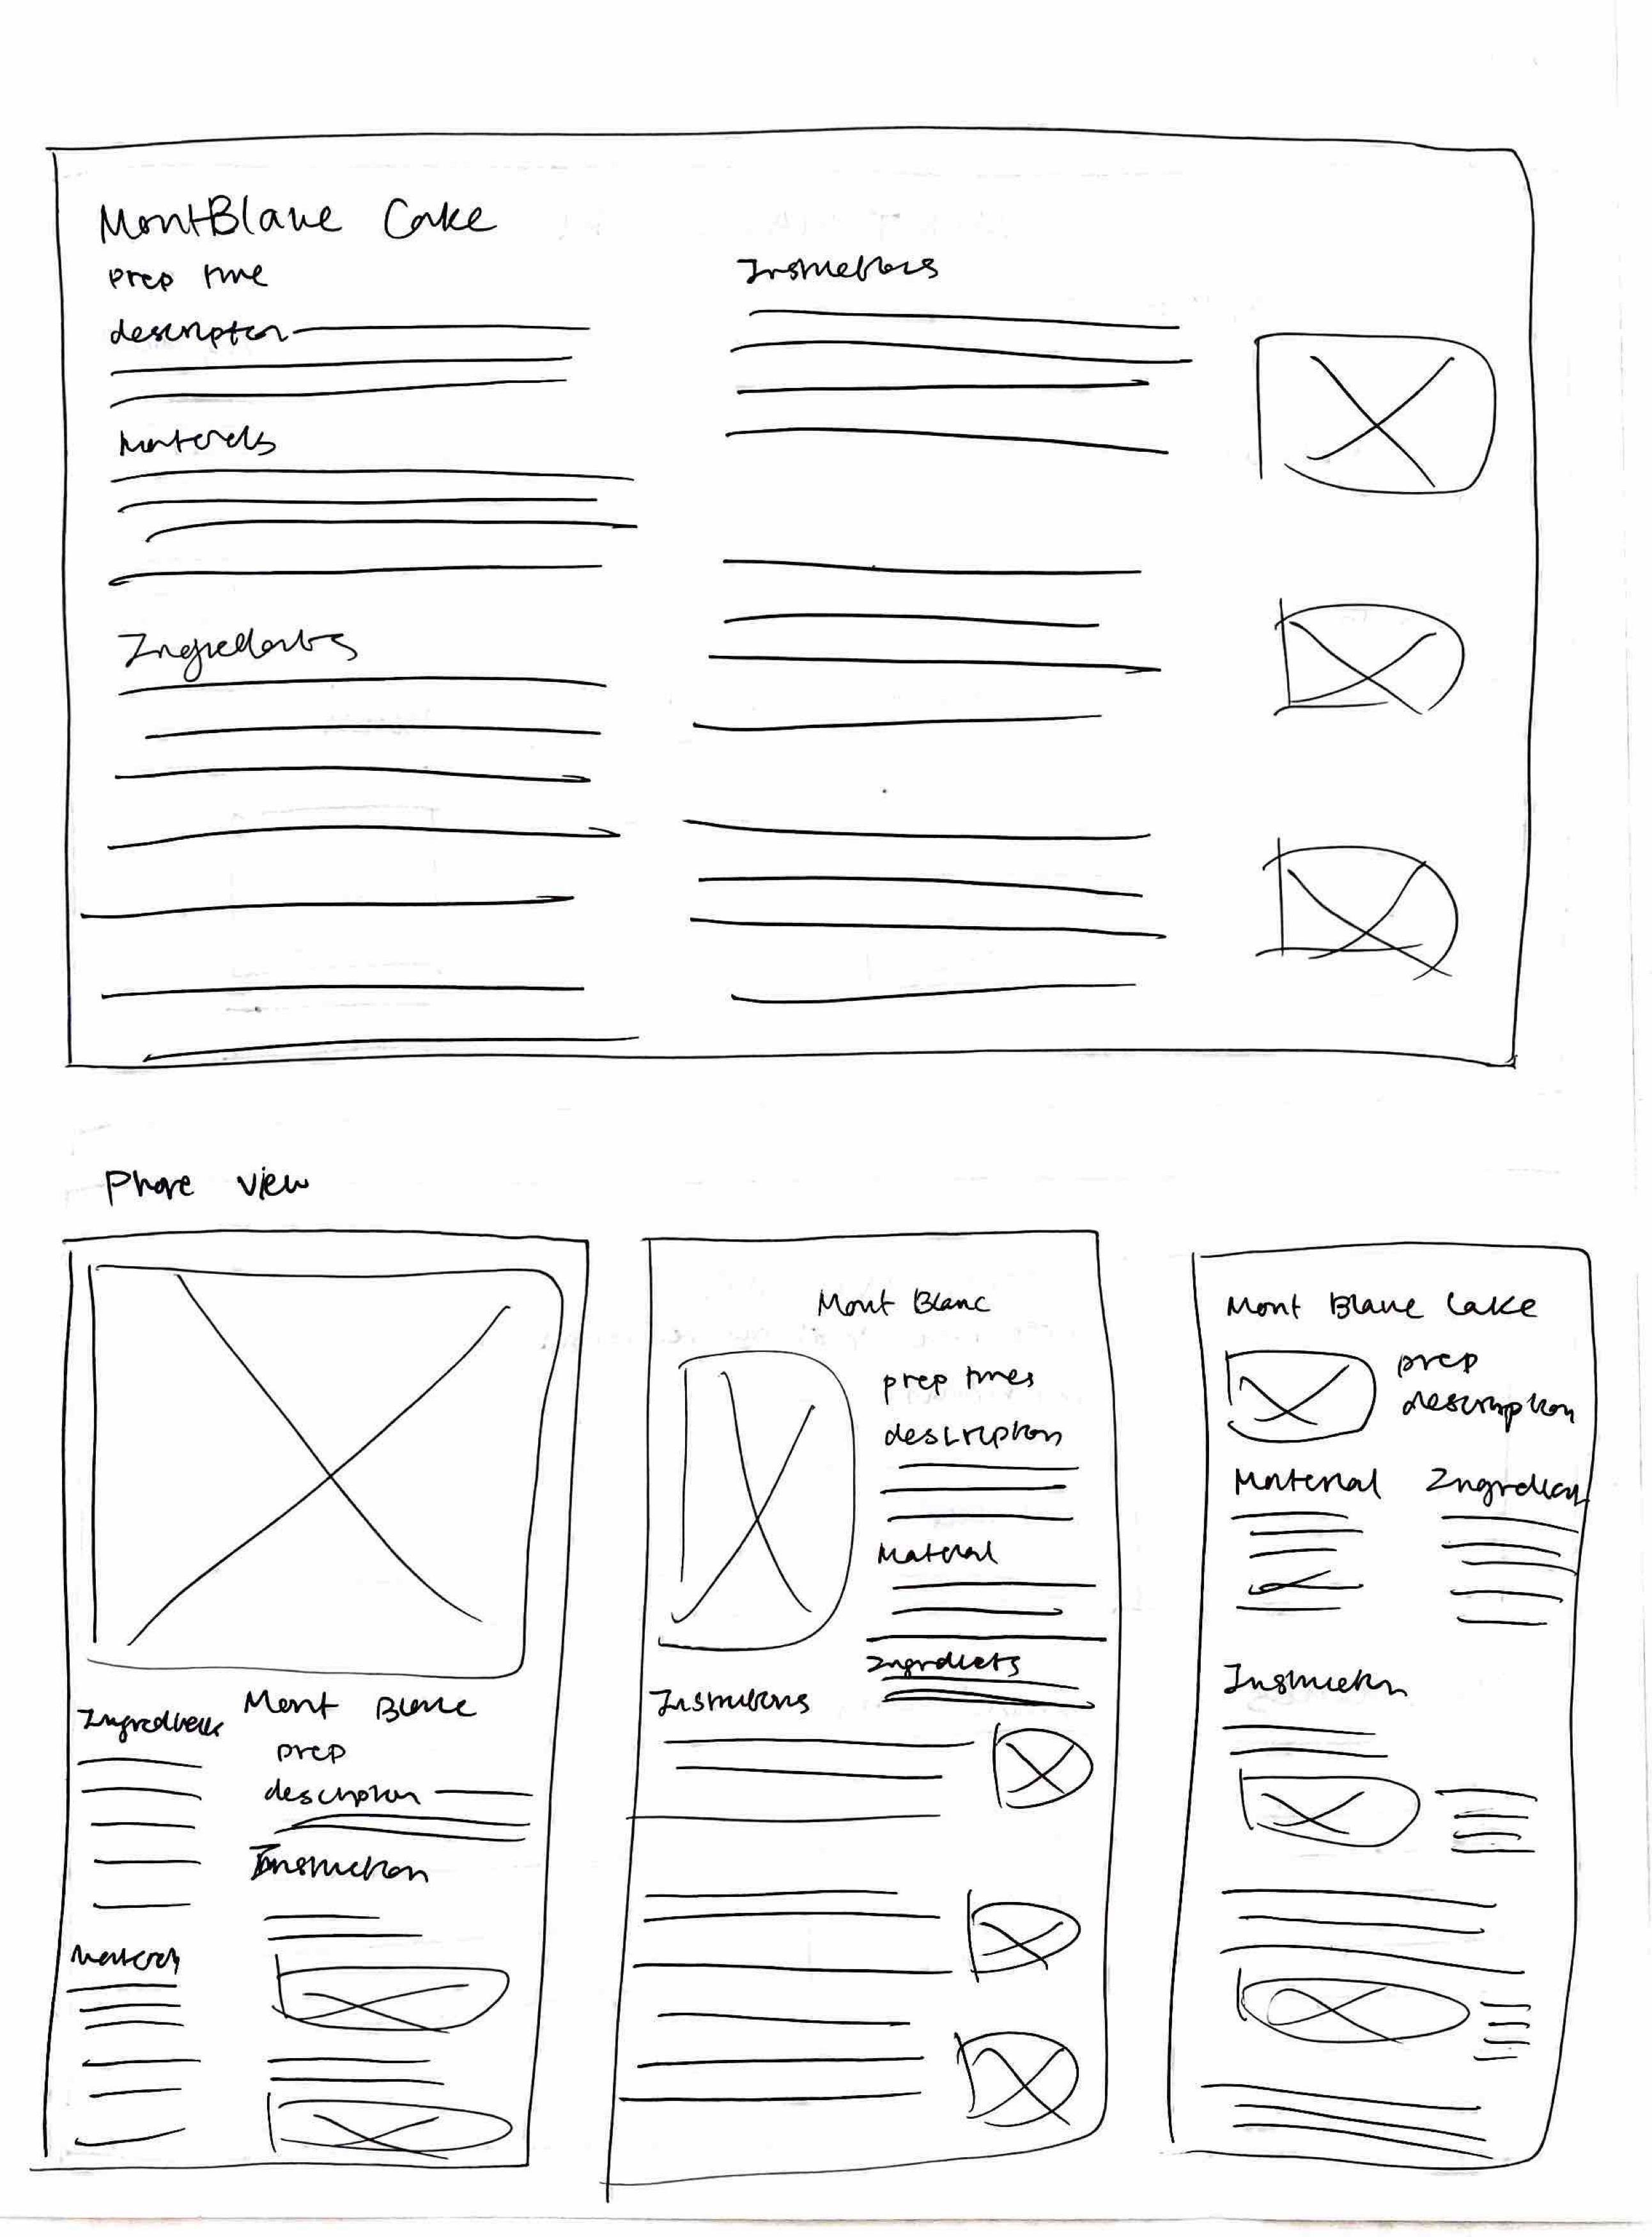 MontBlanc Cake
Prep time
description
Materials
Ingredients
Instructions
Phone view
Ingredients
Materials
Mont Blanc
prep
description
Instruction
Mont Blanc
prep times
description
Material
Ingredients
Instructions
Mont Blanc Cake
prep
description
Material
Ingredient
Instruction